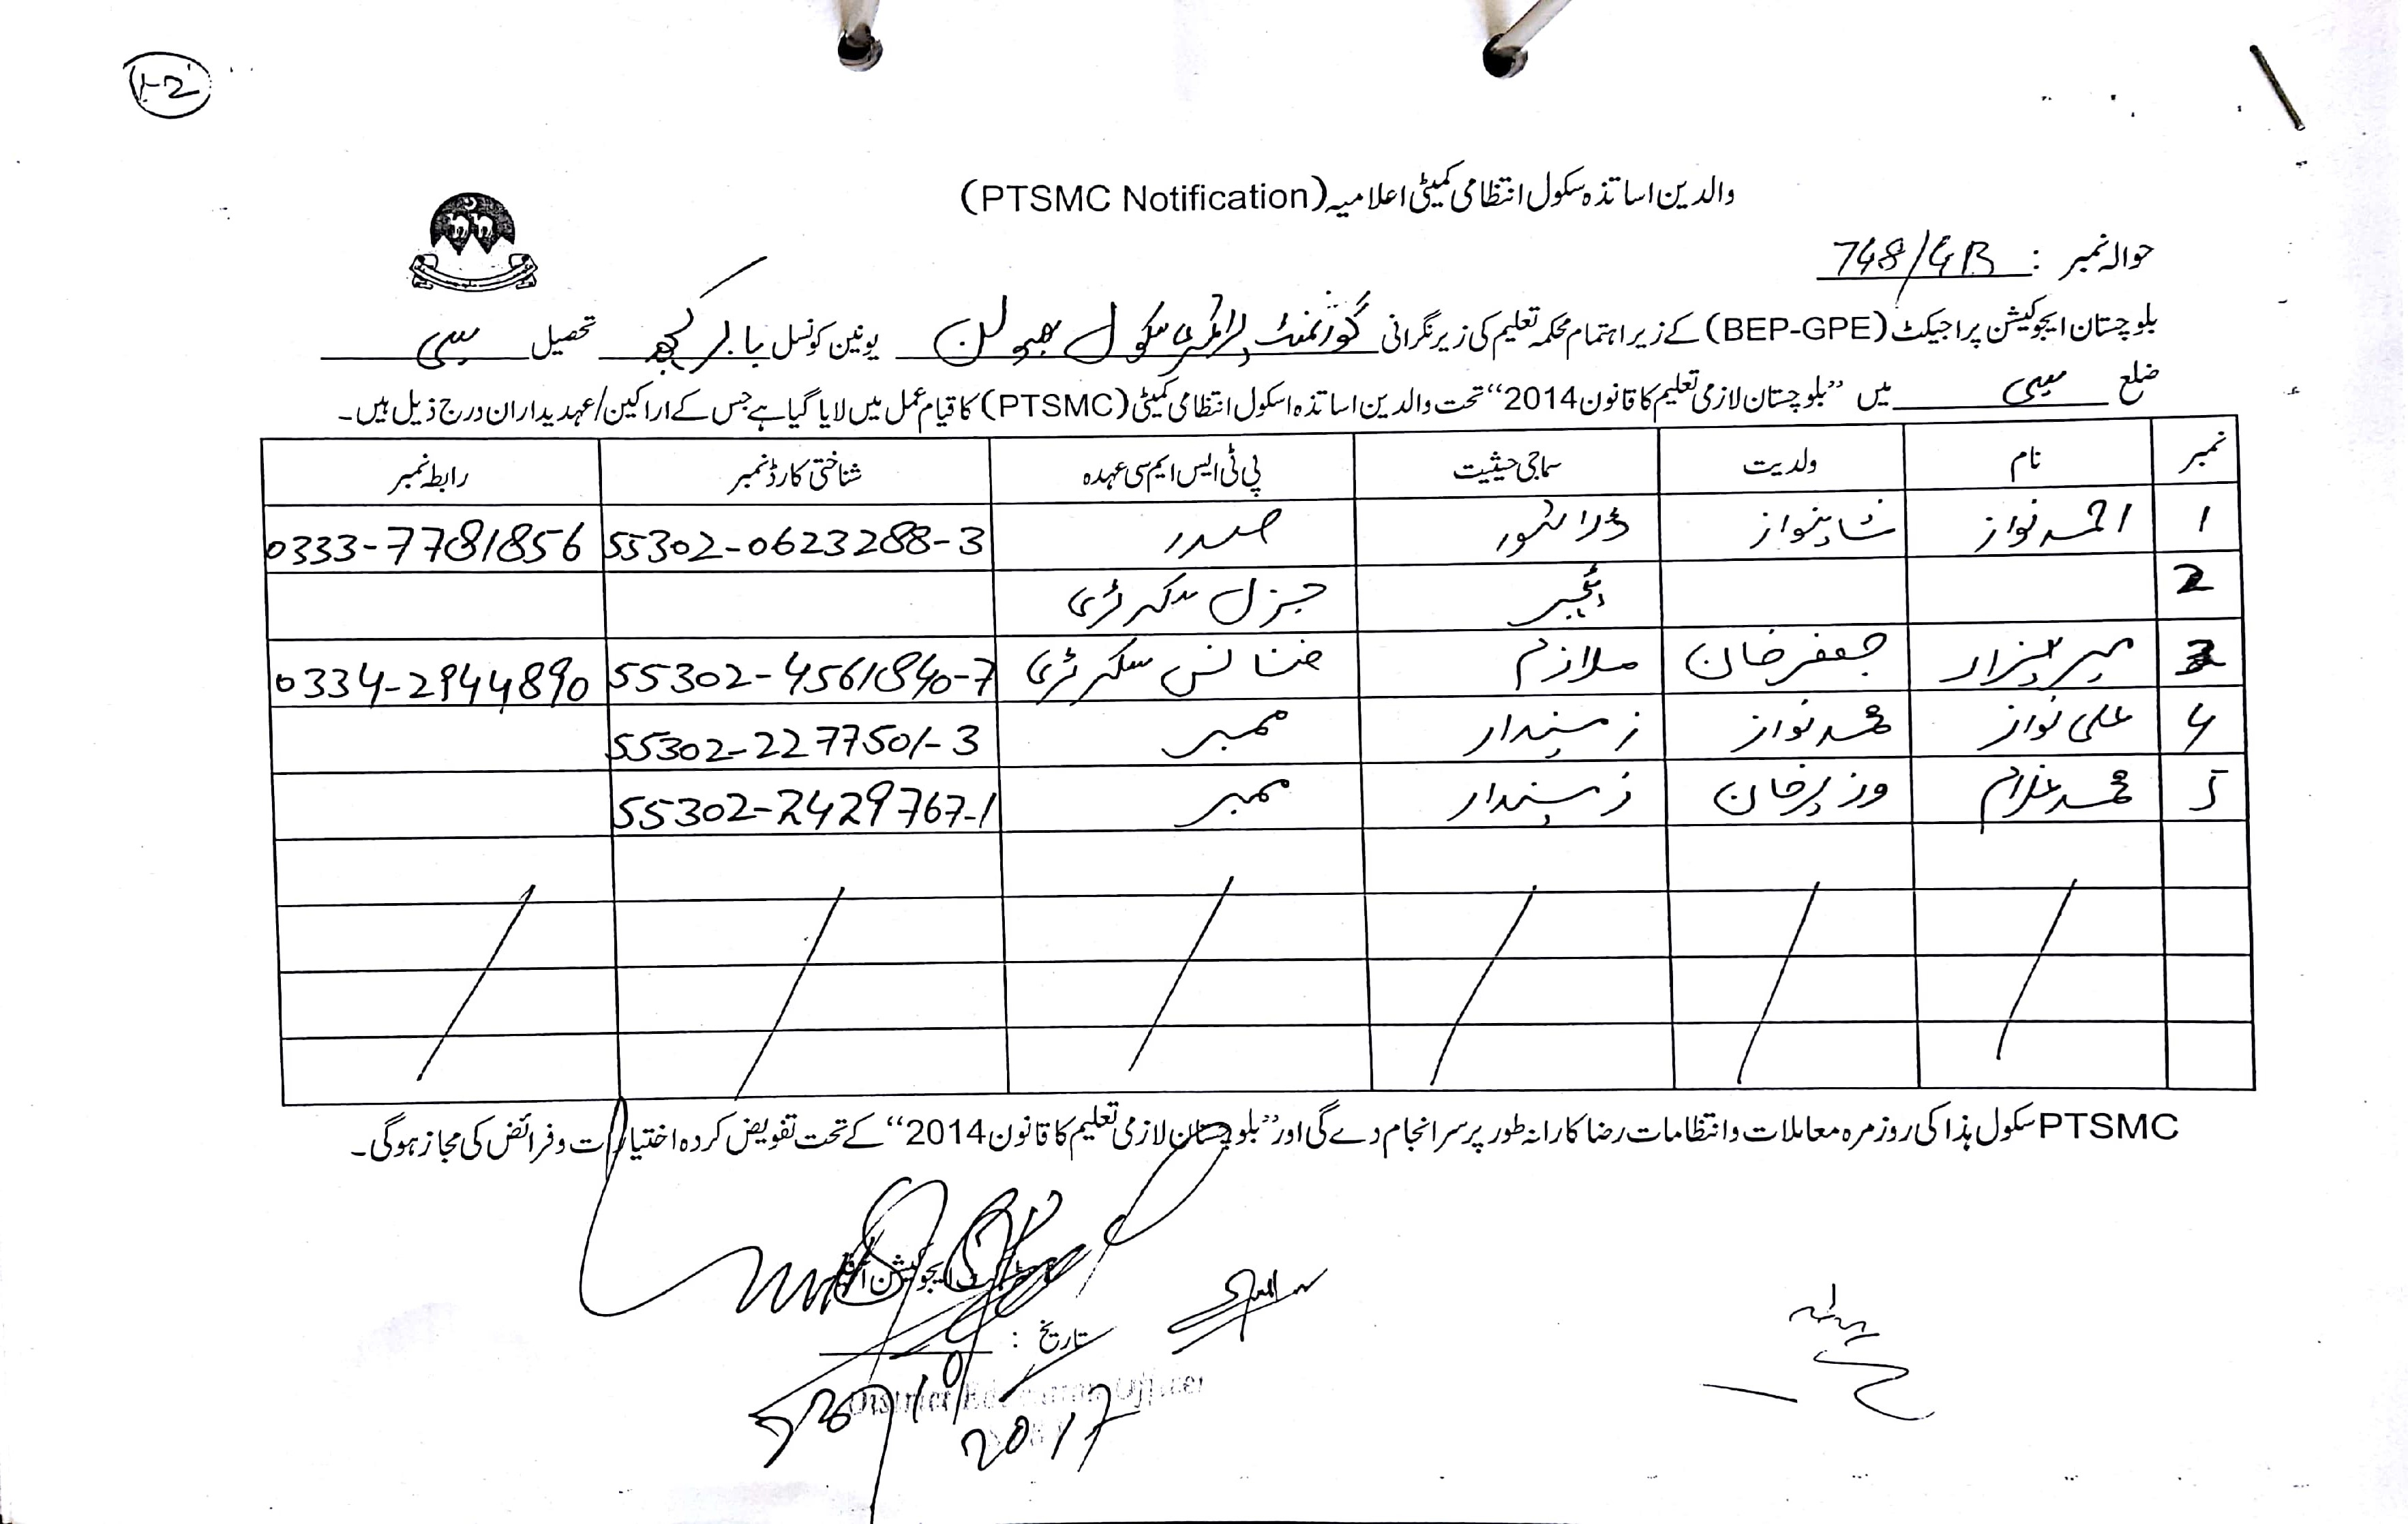 1-2
والدین اساتذہ سکول انتظامی کمیٹی اعلامیہ (PTSMC Notification)
حوالہ نمبر : 748/GB
بلوچستان ایجوکیشن پراجیکٹ (BEP-GPE) کے زیر اہتمام محکمہ تعلیم کی زیر نگرانی گورنمنٹ پرائمری سکول یونین کونسل تحصیل سبی
ضلع سبی میں ”بلوچستان لازمی تعلیم کا قانون 2014“ تحت والدین اساتذہ اسکول انتظامی کمیٹی (PTSMC) کا قیام عمل میں لایا گیا ہے جس کے اراکین/عہدیداران درج ذیل ہیں۔
نمبر نام ولدیت سماجی حیثیت پی ٹی ایس ایم سی عہدہ شناختی کارڈ نمبر رابطہ نمبر
1 احمد نواز شاہنواز صدر 55302-0623288-3 0333-7781856
2 ٹیچر جنرل سکرٹری
3 میر ہزار جعفر خان ملازم فنانس سکرٹری 55302-4561840-7 0334-2944890
4 علی نواز محمد نواز زمیندار ممبر 55302-2277501-3
5 محمد غلام وزیر خان زمیندار ممبر 55302-2429767-1
PTSMC سکول ہذا کی روز مرہ معاملات و انتظامات رضا کارانہ طور پر سر انجام دے گی اور ”بلوچستان لازمی تعلیم کا قانون 2014“ کے تحت تفویض کردہ اختیارات و فرائض کی مجاز ہوگی۔
ڈسٹرکٹ ایجوکیشن آفیسر
تاریخ :
2017
District Education Officer